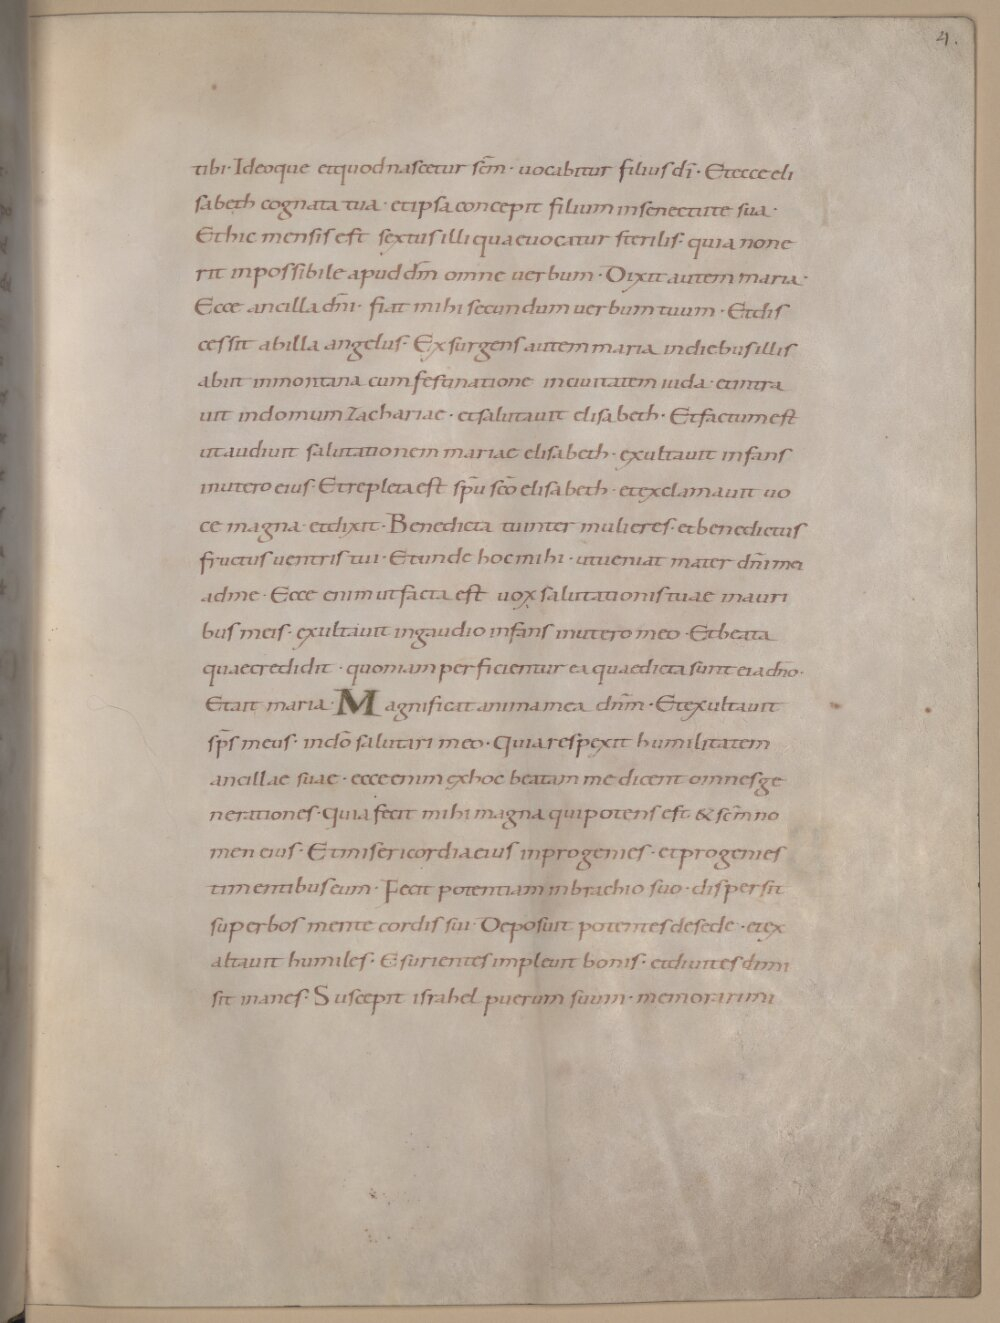 4.
tibi· Ideoque etquodnascetur sc̄m· uocabitur filius dī· Etecce eli
sabeth cognata tua· etipsa concepit filium insenectute sua·
Ethic mensis est sextus illi quae uocatur sterilis· quia none
rit inpossibile apud dm̄ omne uerbum· Dixit autem maria·
Ecce ancilla dn̄i· fiat mihi secundum uerbum tuum· Etdis
cessit abilla angelus· Exsurgens autem maria indiebus illis
abiit inmontana cum festinatione inciuitatem iuda· etintra
uit indomum Zachariae· etsalutauit elisabeth· Etfactum est
utaudiuit salutationem mariae elisabeth· exultauit infans
inutero eius· Etrepleta est sp̄u sc̄o elisabeth· etexclamauit uo
ce magna· etdixit· Benedicta tuinter mulieres· etbenedictus
fructus uentris tui· Etunde hoc mihi· utueniat mater dn̄i mei
adme· Ecce enim utfacta est uox salutationis tuae inauri
bus meis· exultauit ingaudio infans inutero meo· Etbeata
quaecredidit· quoniam perficientur ea quaedicta sunt eia dn̄o·
Etait maria· Magnificat anima mea dn̄m· Etexultauit
sp̄s meus· indō salutari meo· Quia respexit humilitatem
ancillae suae· ecceenim exhoc beatam me dicent omnes ge
nerationes· Quia fecit mihi magna quipotens est· & sc̄m no
men eius· Etmisericordia eius inprogenies· etprogenies
timentibus eum· Fecit potentiam inbrachio suo· dispersit
superbos mente cordis sui· Deposuit potentes desede· etex
altauit humiles· Esurientes impleuit bonis· etdiuites dimi
sit inanes· Suscepit israhel puerum suum· memorari mi